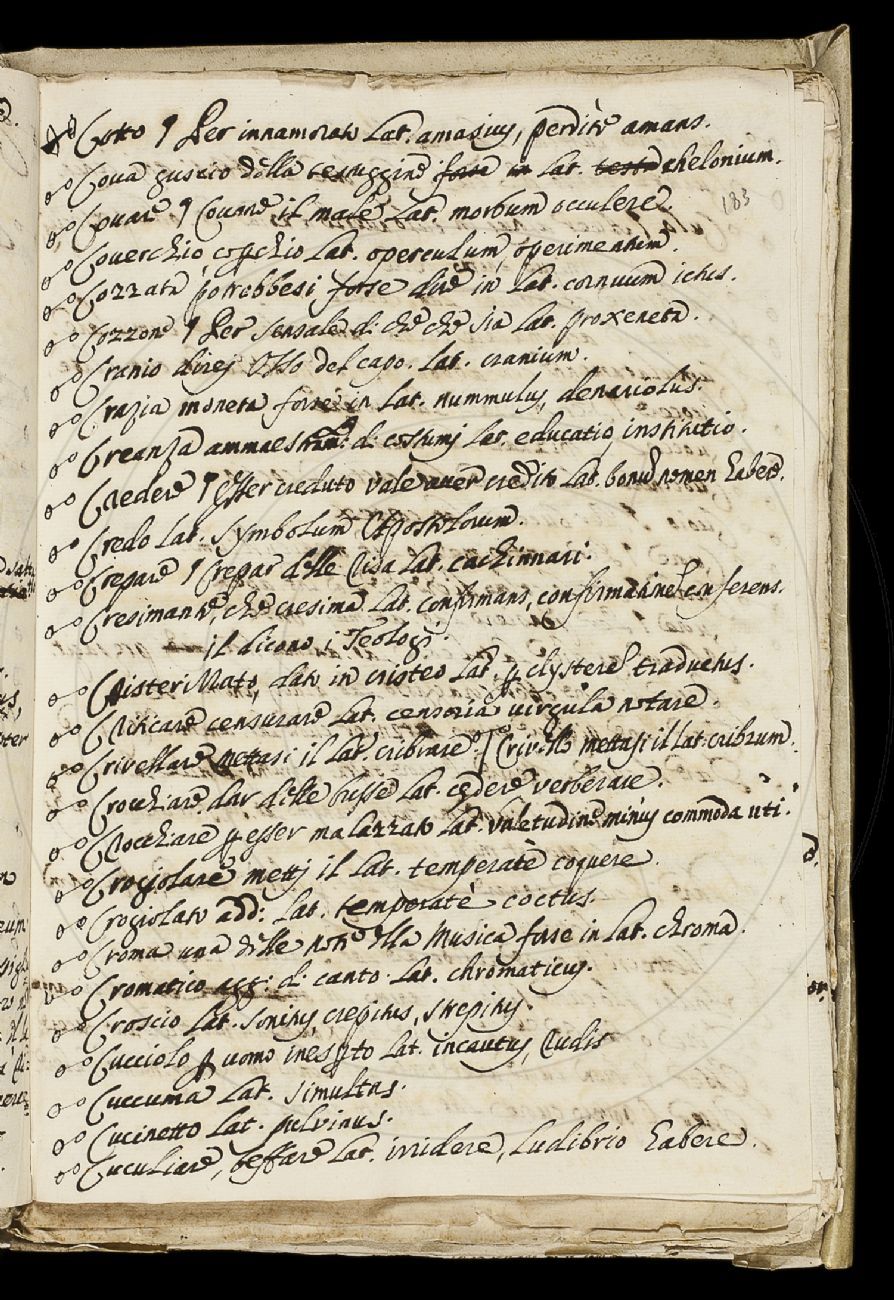 Cotto ¶ Per innamorato Lat. amasius, perditè amans.
Cova guscio della testuggine forse in Lat. testu chelonium.
183
Covare ¶ Covare il male Lat. morbum occulere.
Coverchio copchio Lat. operculum, operimentum.
Cozzata potrebbesi forse dire in Lat. cornuum ictus.
Cozzone ¶ Per sensale di chè chè sia Lat. proxeneta.
Cranio direj Osso del capo. Lat. cranium.
Crazia moneta forse in Lat. nummulus, denariolus.
Creanza ammaestram: di costumj Lat. educatio, institutio.
Credere ¶ Esser creduto vale aver credito Lat. bonum nomen habere.
Credo Lat. Symbolum Apostolorum.
Crepare ¶ Crepar delle risa Lat. cachinnari.
Cresimante, che cresima Lat. confirmans, conferens.
il dicono i Teologi.
Cristerizzato, dato in cristeo Lat. p clystere traductus.
Criticare censurare Lat. censoria virgula notare.
Crivellare mettasi il Lat. cribrare. Crivello mettasi il lat. cribrum.
Crocchiare dar delle busse Lat. cędere verberare.
Crocchiare p esser malazzato Lat. valetudine minus commoda uti.
Crogiolare mettj il Lat. temperatè coquere.
Crogiolato add: Lat. temperatè coctus.
Croma una delle note della Musica forse in Lat. chroma.
Cromatico agg: di canto Lat. chromaticus.
Croscio Lat. sonitus, crepitus, strepitus.
Cucciolo p uomo inespto Lat. incautus, rudis
Cuccuma Lat. simultas.
Cucinetto Lat. pulvinus.
Cuculiare, beffare Lat. irridere, ludibrio habere.